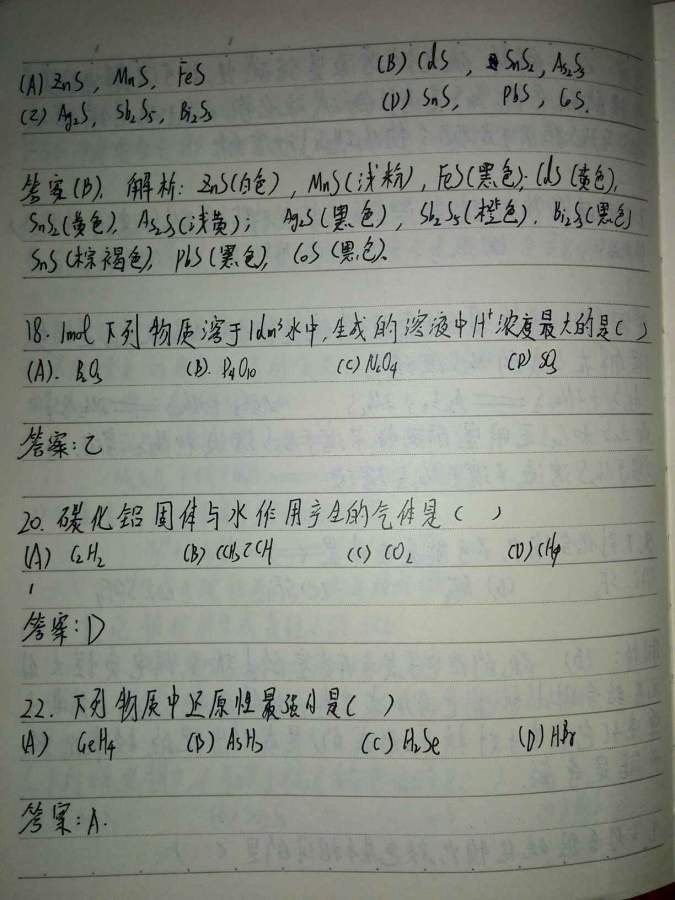 (A) ZnS, MnS, FeS (B) CdS, SnS2, As2S3
(C) Ag2S, Sb2S5, Bi2S3 (D) SnS, PbS, CoS.
答案(B). 解析: ZnS(白色), MnS(浅粉), FeS(黑色); CdS(黄色),
SnS2(黄色), As2S3(浅黄); Ag2S(黑色), Sb2S5(橙色), Bi2S3(黑色)
SnS(棕褐色), PbS(黑色), CoS(黑色).
18. 1mol下列物质溶于1dm³水中,生成的溶液中H⁺浓度最大的是( )
(A). B2O3 (B). P4O10 (C) N2O4 (D) SO3
答案:乙
20. 碳化铝固体与水作用产生的气体是( )
(A) C2H2 (B) CH3CCH (C) CO2 (D) CH4
答案:D
22. 下列物质中还原性最强的是( )
(A) GeH4 (B) AsH3 (C) H2Se (D) HBr
答案:A.